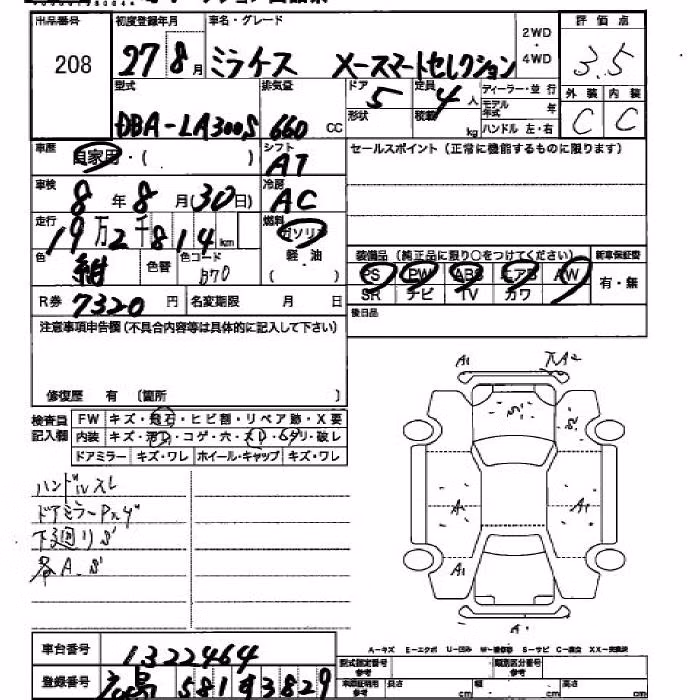 出品番号 初度登録年月 車名・グレード 2WD・4WD 評価点
208 27 8月 ミライース メースマートセレクション 3.5
型式 排気量 ドア 定員 ディーラー・並行 外装 内装
DBA-LA300S 660 CC 5 4人 モデル年式 年 C C
形状 積載 kg ハンドル 左・右
車歴 自家用・( ) シフト AT セールスポイント(正常に機能するものに限ります)
車検 8年8月(30日) 冷房 AC
走行 19万2千814km 燃料 ガソリン
軽・油
( )
色 紺 色替 色コード B70
装備品(純正品に限り○をつけてください) 新車保証書
PS PW ABS エアB AW 有・無
SR ナビ TV カワ
R券 7320円 名変期限 月 日 後日品
注意事項申告欄(不具合内容等は具体的に記入して下さい)
修復歴 有 〔箇所 〕
検査員記入欄 FW キズ・飛石・ヒビ割・リペア跡・X要
内装 キズ・・コゲ・穴・スレ・・破レ
ドアミラー キズ・ワレ ホイール・キャップ キズ・ワレ
ハンドルスレ
ドアミラーPズ
下廻りS
各A.S
A1 A2
S S2
A1 A1
A1
A
A-キズ E-エクボ U-凹み W-補修 S-サビ C-腐食 XX-交換済
車台番号 1322464
型式指定番号 参考 類別区分番号 参考
登録番号 581 3829
車両証明用 参考 長さ cm 幅 cm 高さ cm